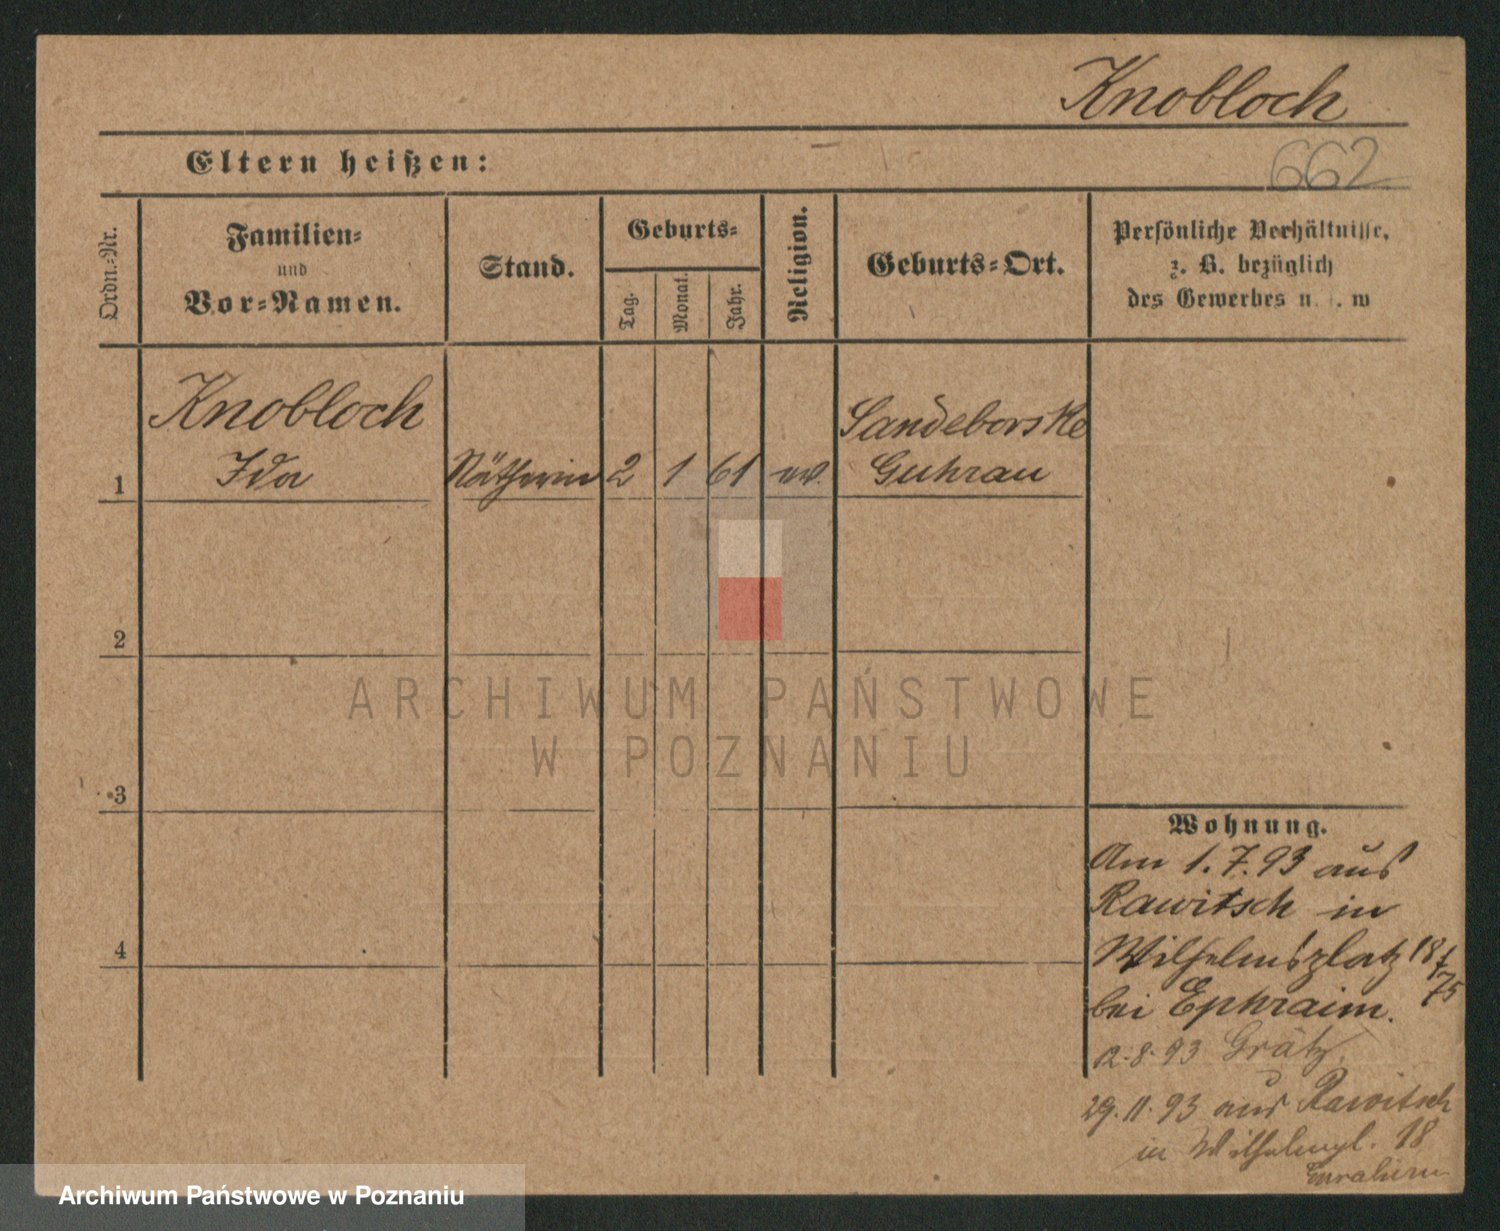 Knobloch
662
Eltern heißen:
Ordn.-Nr.
Familien-
und
Vor-Namen.
Stand.
Geburts-
Tag.
Monat.
Jahr.
Religion.
Geburts-Ort.
Persönliche Verhältnisse,
z. B. bezüglich
des Gewerbes u. s. w
1
Knobloch
Ida
Nätherin
2
1
61
ev.
Sandeborske
Guhrau
2
3
4
Wohnung.
Am 1.7.93 aus
Rawitsch in
Wilhelmsplatz 18
bei Ephraim.
12.8.93 Grätz.
29.11.93 aus Rawitsch
in Wilhelmspl. 18
ARCHIWUM PAŃSTWOWE
W POZNANIU
Archiwum Państwowe w Poznaniu